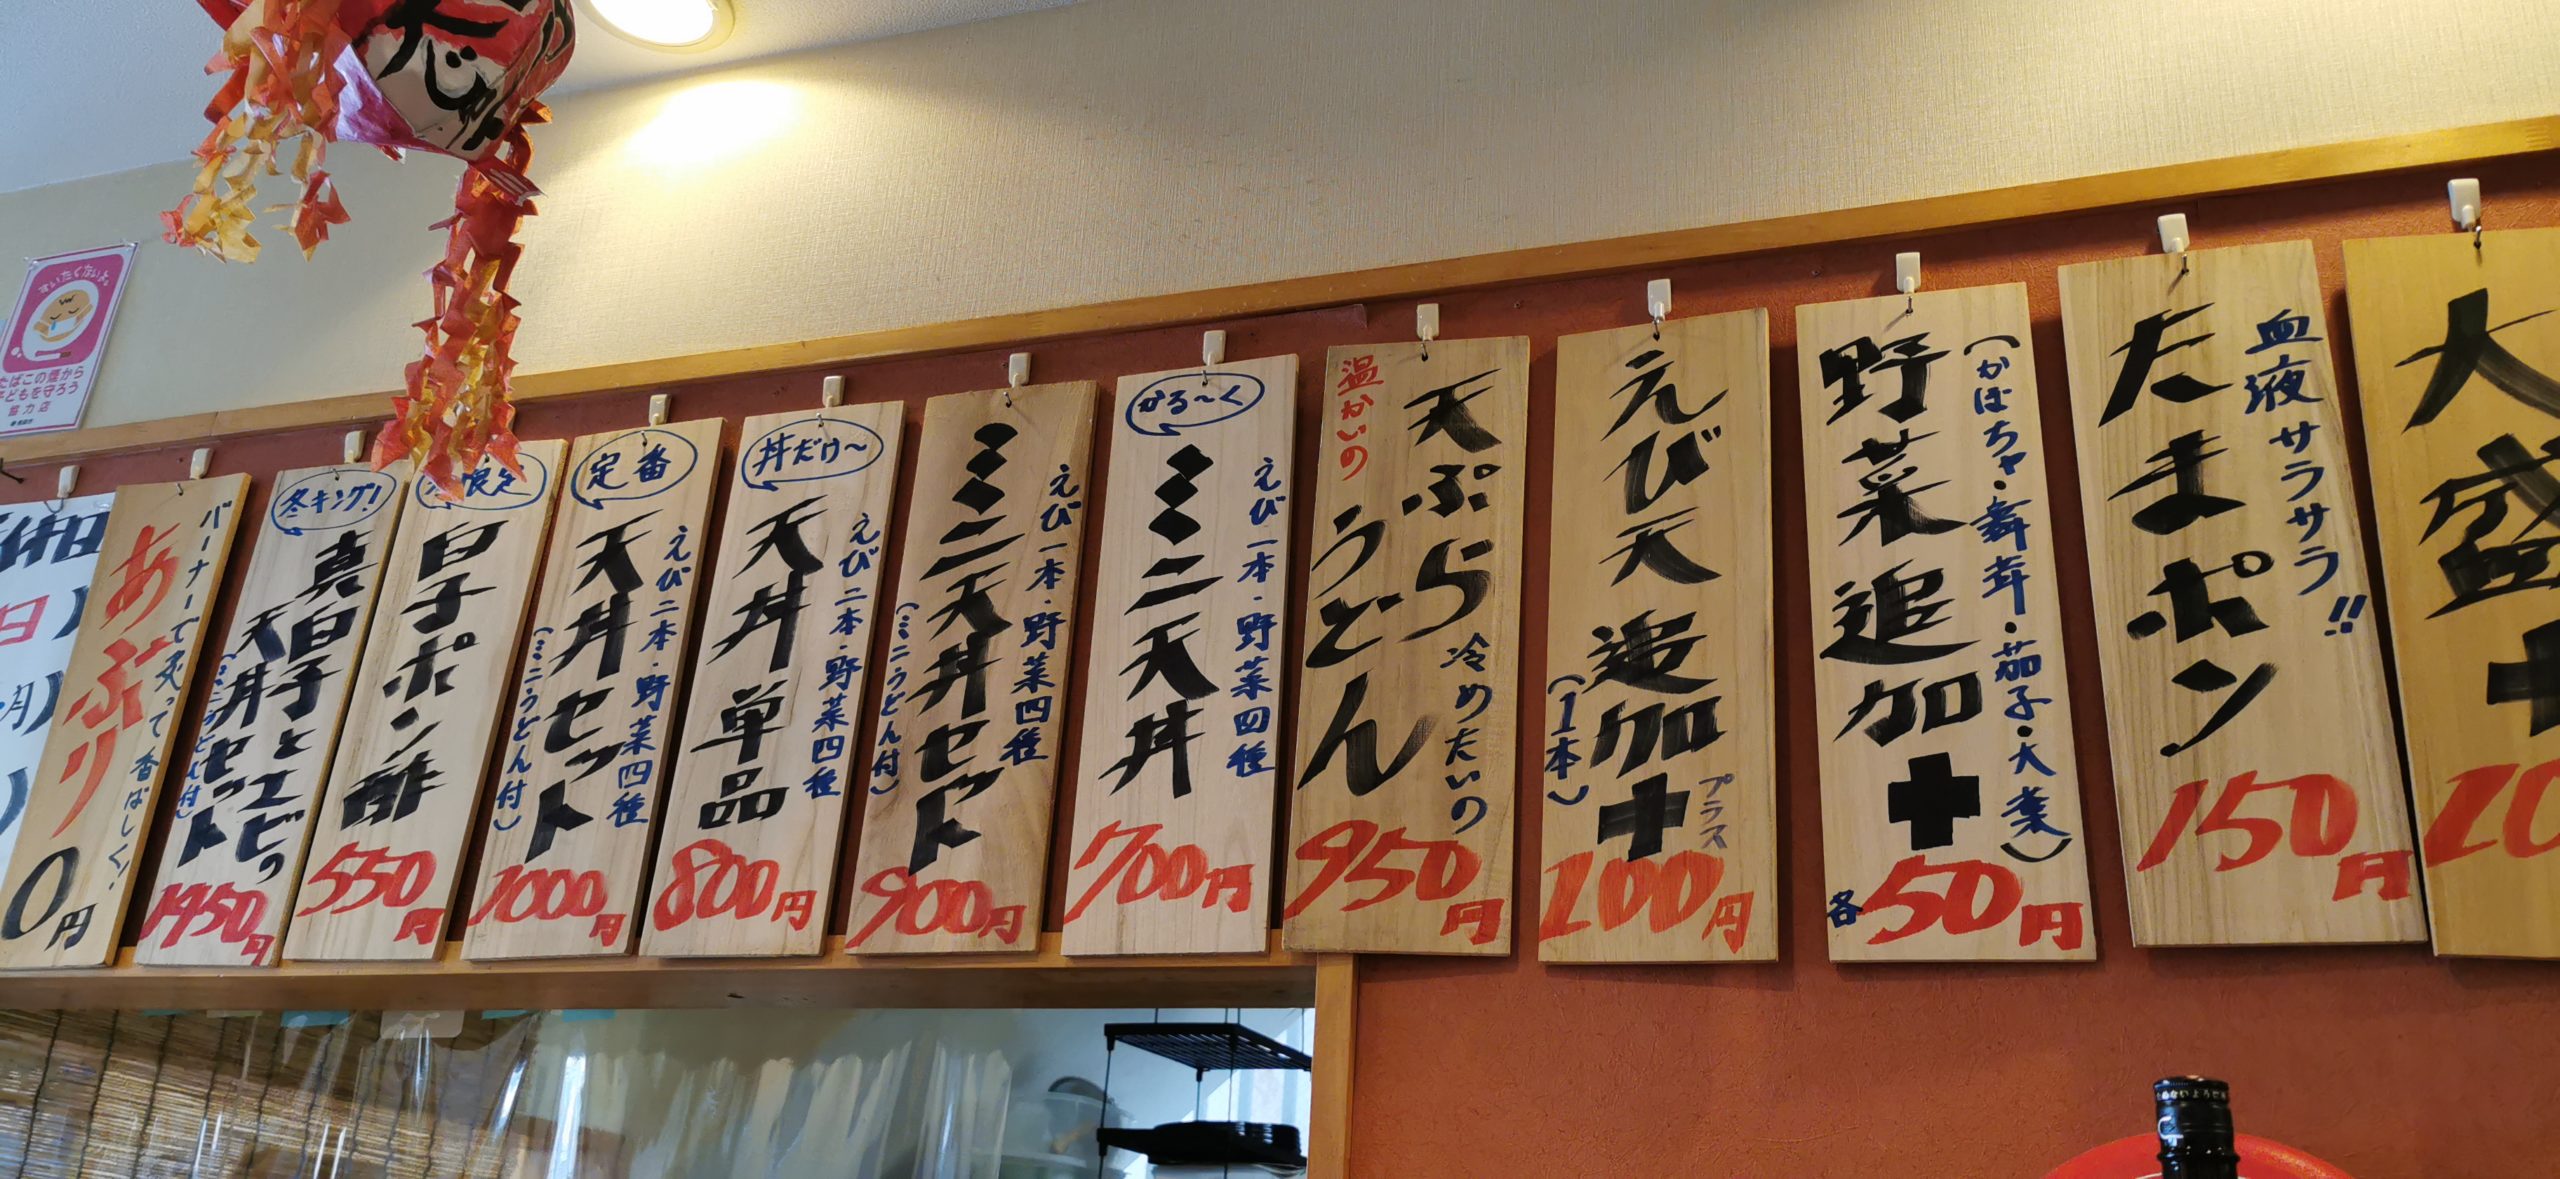 すいたくないよ
たばこの煙から
子どもを守ろう
協力店
バーナーで炙って香ばしく!
あぶり
0円
冬キング!
真白子とエビの
天丼セット
(ミニうどん付)
1450円
限定
白子ポン酢
550円
定番
えび二本・野菜四種
天丼セット
(ミニうどん付)
1000円
丼だけ〜
えび二本・野菜四種
天丼単品
800円
えび一本・野菜四種
ミニ天丼セット
(ミニうどん付)
900円
かる〜く
えび一本・野菜四種
ミニ天丼
700円
天ぷら
冷めたいの
温かいの
うどん
950円
えび天追加+
プラス
(1本)
200円
(かぼちゃ・舞茸・茄子・大葉)
野菜追加+
各50円
血液サラサラ!!
たまポン
150円
大盛+
日
月)